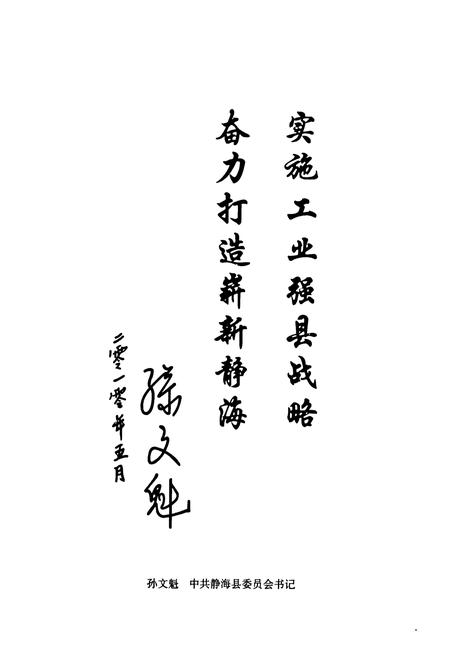 实施工业强县战略
奋力打造崭新静海
孫文魁
二零一零年五月
孙文魁 中共静海县委员会书记